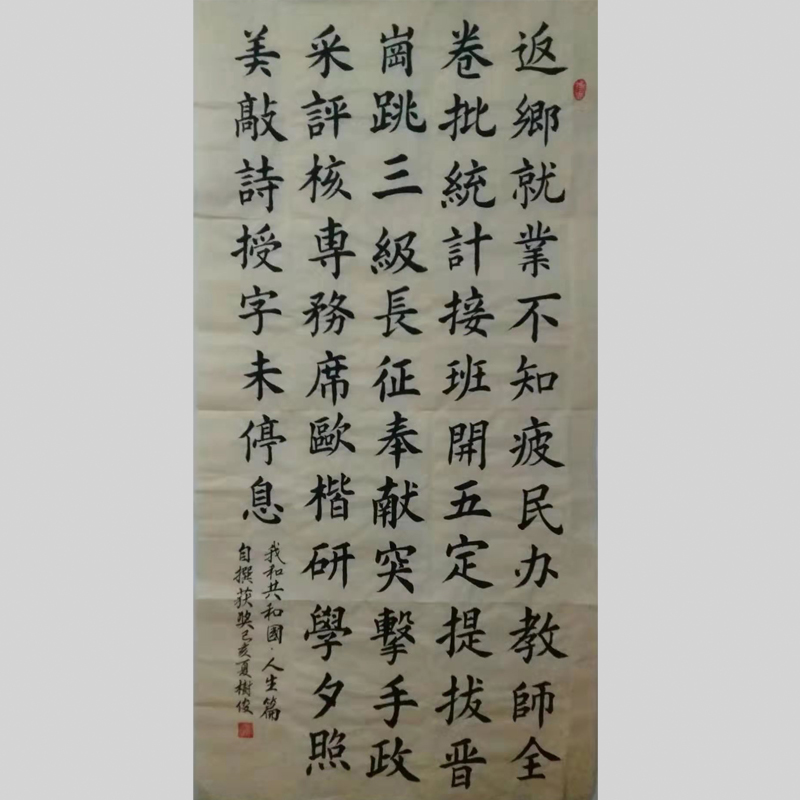 返鄉就業不知疲民办教師全
卷批統計接班開五定提拔晋
崗跳三級長征奉献突擊手政
采評核專務席歐楷研學夕照
美敲詩授字未停息
我和共和國·人生篇
自撰获奖己亥夏樹俊